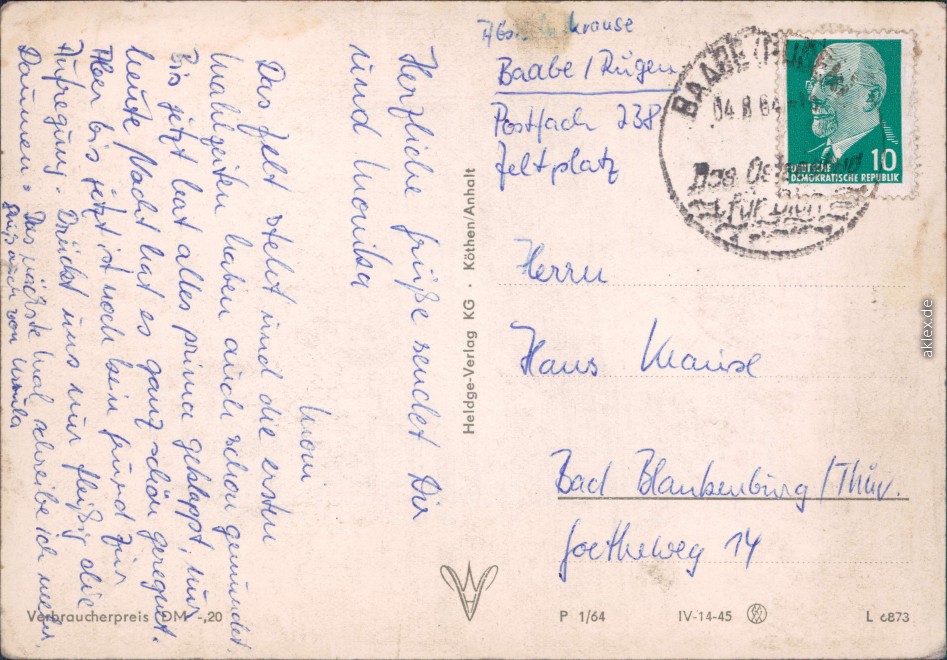 Herzliche Grüße sendet Dir
und Monika
Mani
Das Zelt steht und die ersten
Mahlzeiten haben auch schon gemundet.
Bis jetzt hat alles prima geklappt, nur
heute Nacht hat es ganz schön geregnet.
Aber bis jetzt ist noch kein Grund zur
Aufregung. Drückt uns nur fleißig die
Daumen. Das nächste Mal schreibe ich mehr.
Gruß auch von Ursula
Verbraucherpreis DM -,20
Heldge-Verlag KG · Köthen/Anhalt
Abs. Krause
Baabe/Rügen
Postfach 238
Zeltplatz
BAABE (RÜGEN)
04.8.64
Das Ostseebad
für Dich
10
DEUTSCHE
DEMOKRATISCHE REPUBLIK
Herrn
Hans Krause
Bad Blankenburg/Thür.
Goetheweg 14
P 1/64 IV-14-45 L 6873
aklex.de